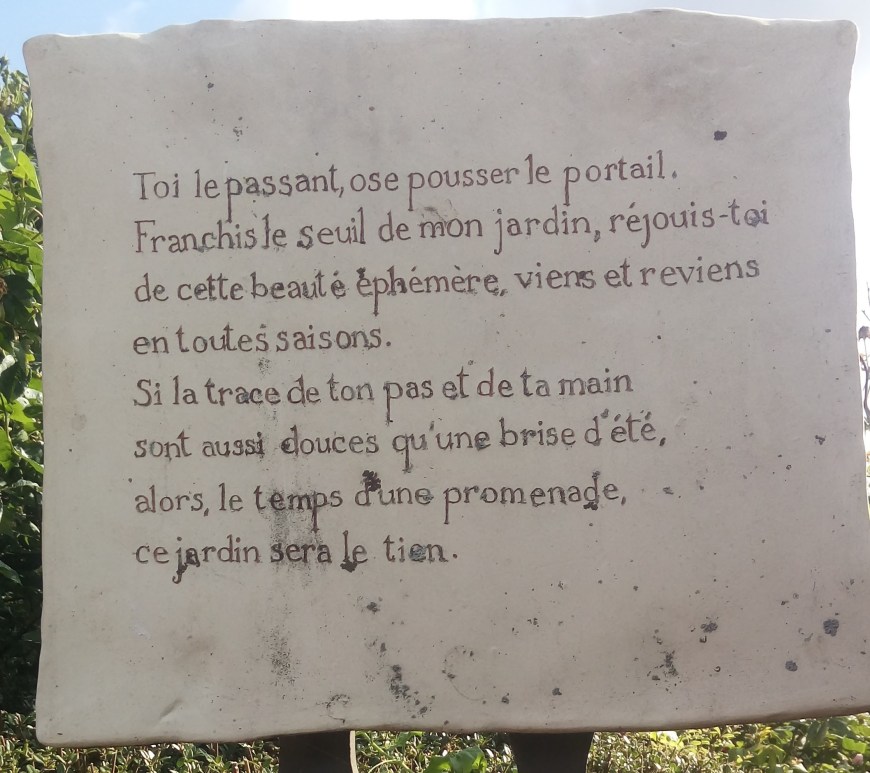 Toi le passant, ose pousser le portail.
Franchis le seuil de mon jardin, réjouis-toi
de cette beauté éphémère, viens et reviens
en toutes saisons.
Si la trace de ton pas et de ta main
sont aussi douces qu'une brise d'été,
alors, le temps d'une promenade,
ce jardin sera le tien.